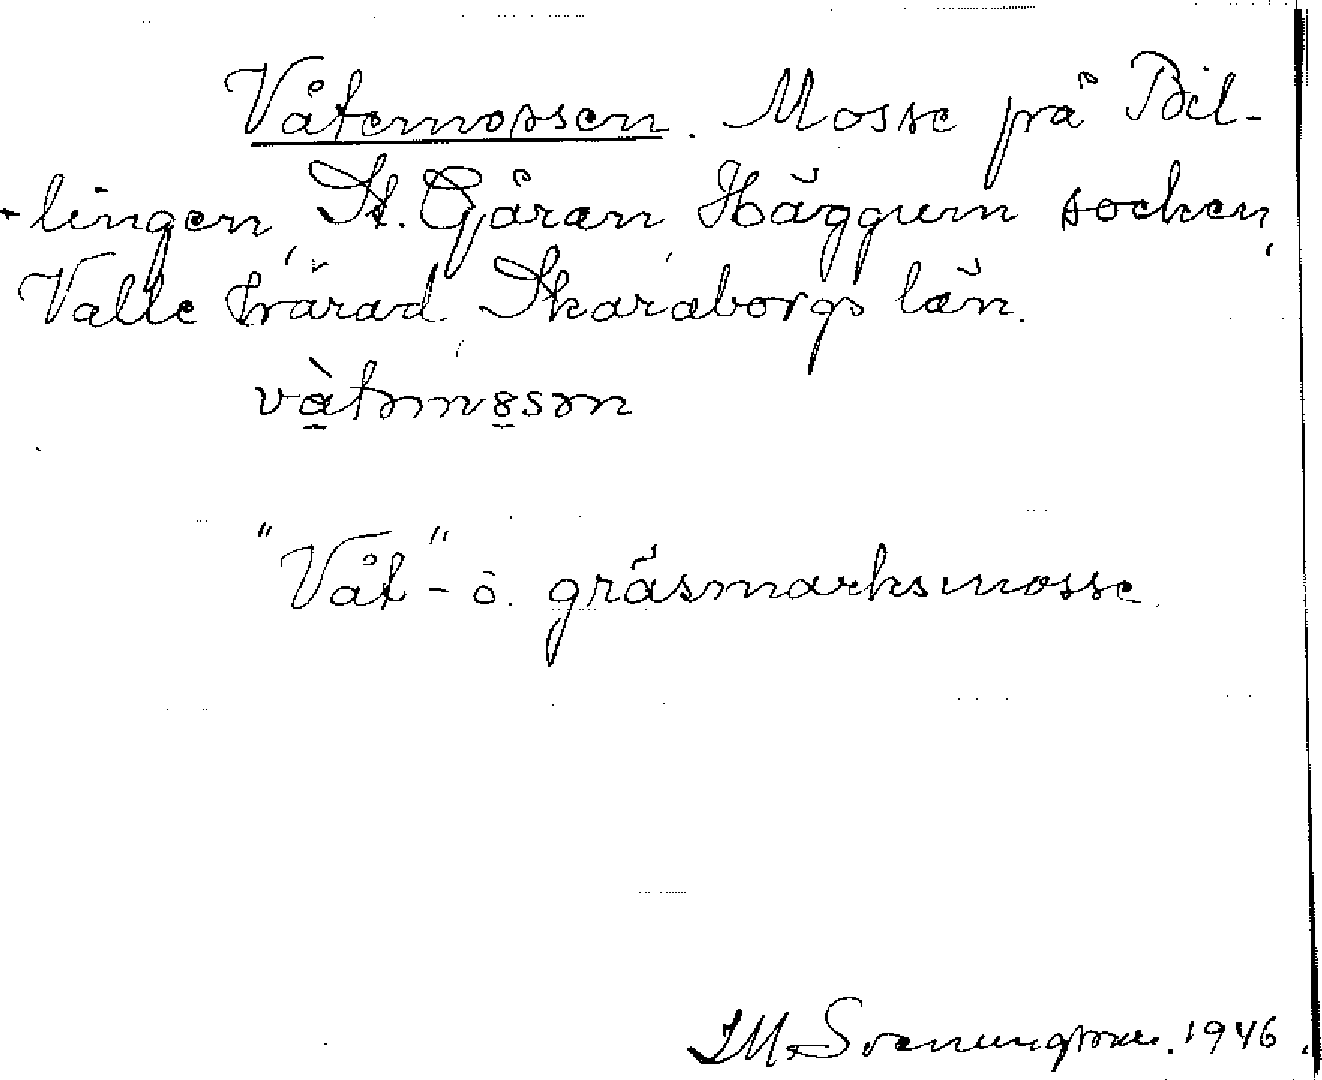 Våtemossen. Mosse på Bil-
-lingen, St. Gjäran, Häggum socken,
Valle härad, Skaraborgs län.
vàtəmo̤sən
"Våt"- o. gräsmarksmosse.
Svenungsson. 1946.